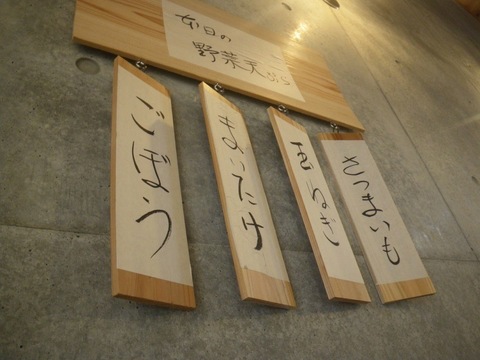 本日の
野菜天ぷら
さつまいも
玉ねぎ
まいたけ
ごぼう